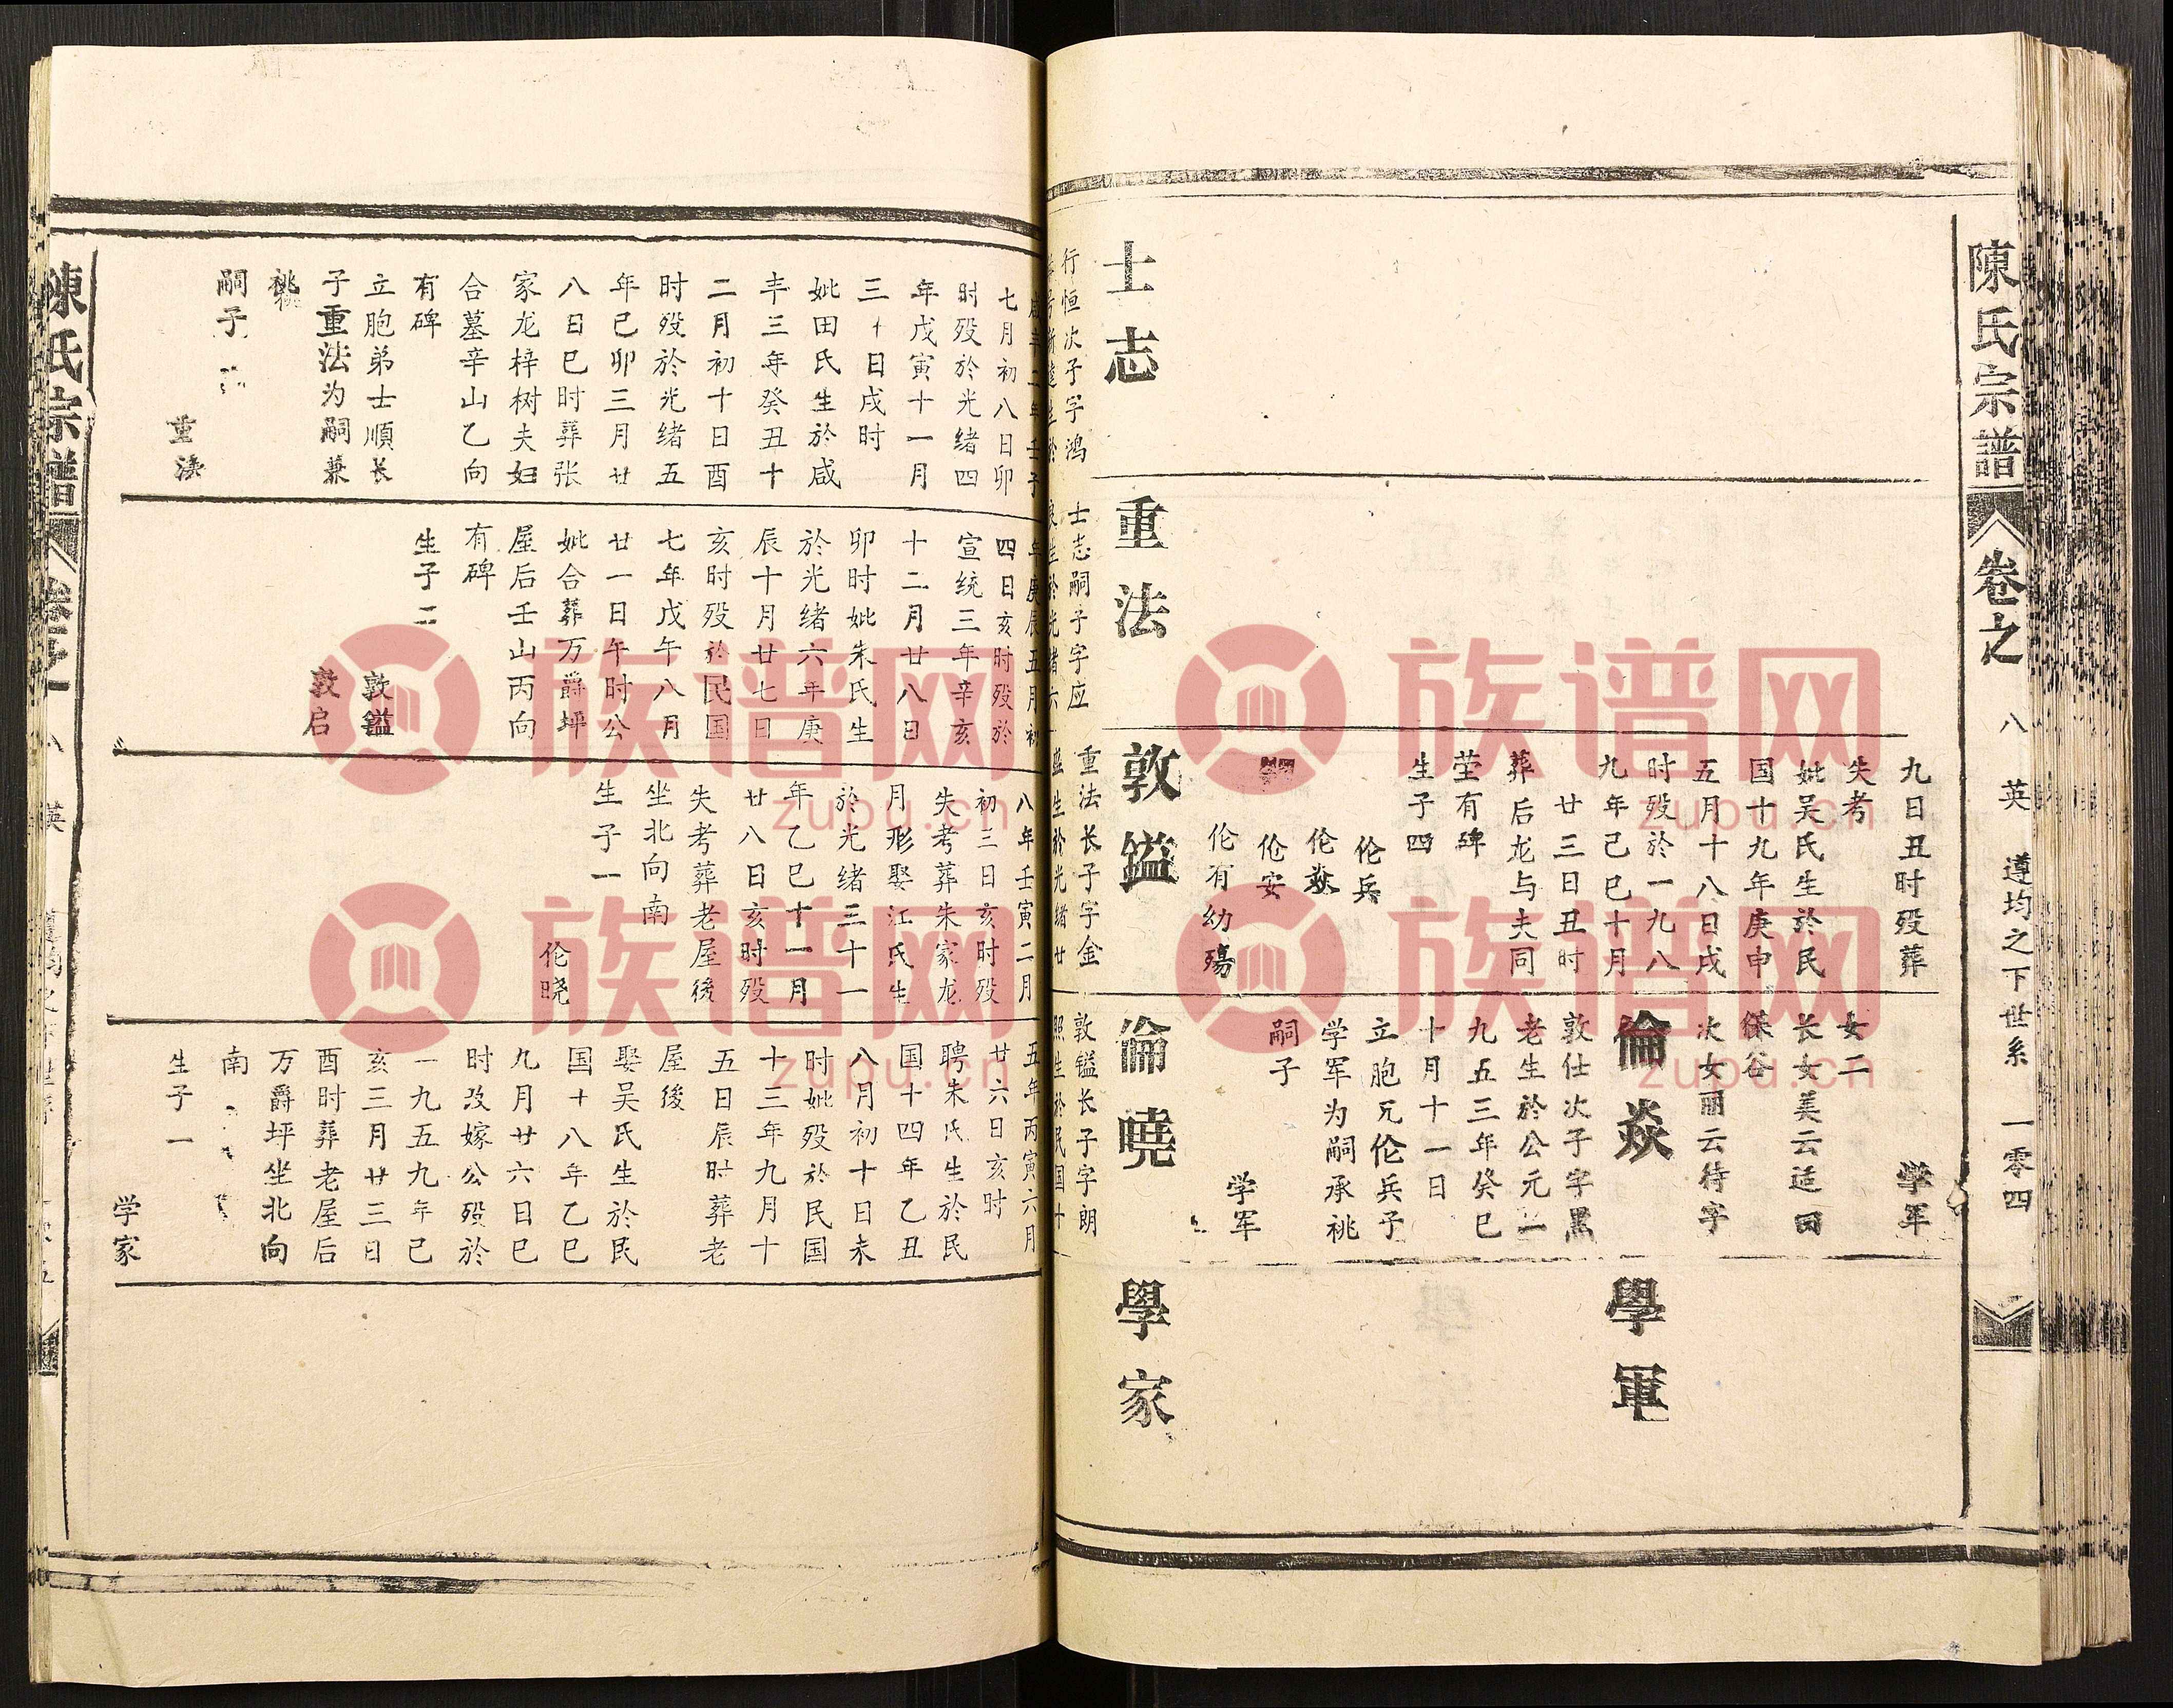 陳氏宗譜
卷之
八
英
遵均之下世系
一零四
士志
行恒次子字鸿
重法
士志嗣子字应
九日丑时殁葬
失考
妣吴氏生於民
国十九年庚申
五月十八日戌
时殁於一九八
九年己巳十月
廿三日丑时
葬后龙与夫同
茔有碑
生子四
伦兵
伦焱
伦安
伦有幼殇
敦鎰
重法长子字金
学军
女二
长女美云适田
徕谷
次女丽云待字
倫焱
敦仕次子字黑
老生於公元一
九五三年癸巳
十月十一日
立胞兄伦兵子
学军为嗣承祧
嗣子
学军
倫曉
敦鎰长子字朗
照生於民国十
學軍
學家
咸丰二年壬子
七月初八日卯
时殁於光绪四
年戊寅十一月
三十日戌时
妣田氏生於咸
丰三年癸丑十
二月初十日酉
时殁於光绪五
年己卯三月廿
八日巳时葬张
家龙梓树夫妇
合墓辛山乙向
有碑
立胞弟士順长
子重法为嗣兼
祧
嗣子
重法
年庚辰五月初
四日亥时殁於
宣统三年辛亥
十二月廿八日
卯时妣朱氏生
於光绪六年庚
辰十月廿七日
亥时殁於民国
七年戊午八月
廿一日午时公
妣合葬万爵坪
屋后壬山丙向
有碑
生子二
敦鎰
敦启
八年壬寅二月
初三日亥时殁
失考葬朱家龙
月形娶江氏生
於光绪三十一
年乙巳十一月
廿八日亥时殁
失考葬老屋後
坐北向南
生子一
伦晓
五年丙寅六月
廿六日亥时
聘朱氏生於民
国十四年乙丑
八月初十日未
时妣殁於民国
十三年九月十
五日辰时葬老
屋後
娶吴氏生於民
国十八年乙巳
九月廿六日巳
时改嫁公殁於
一九五九年己
亥三月廿三日
酉时葬老屋后
万爵坪坐北向
南
生子一
学家
陳氏宗譜
族谱网
zupu.cn
族谱网
zupu.cn
族谱网
zupu.cn
族谱网
zupu.cn